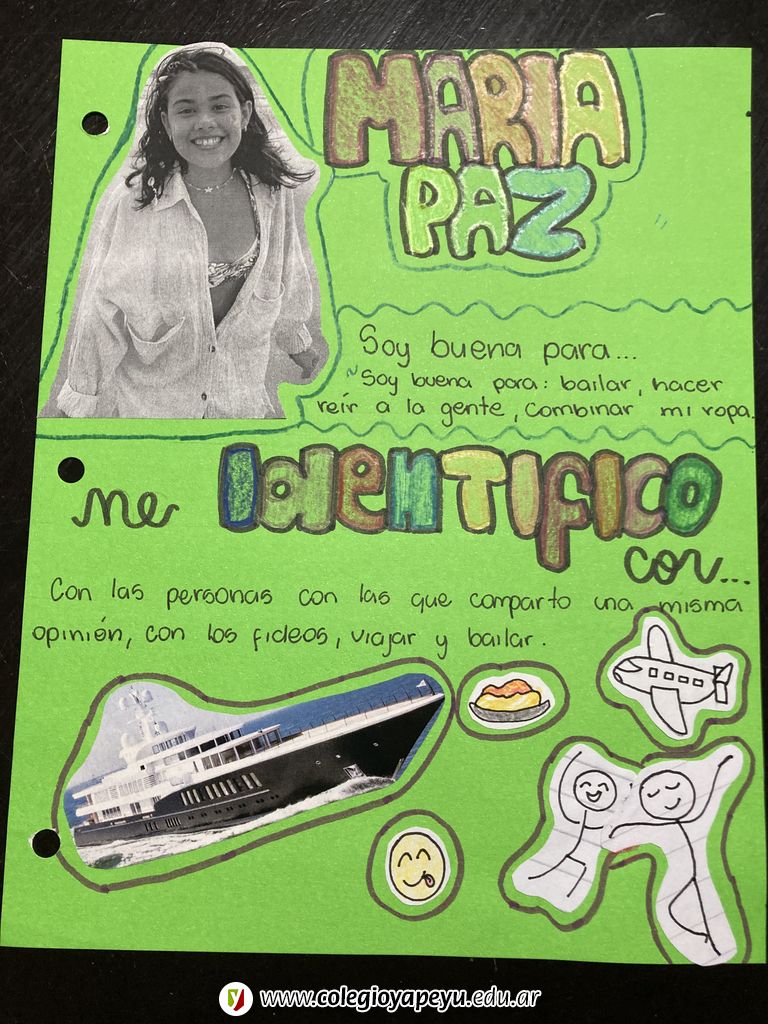 MARIA
PAZ
Soy buena para...
~Soy buena para: bailar, hacer
reír a la gente, combinar mi ropa.
me IdenTIfICO
con...
Con las personas con las que comparto una misma
opinión, con los fideos, viajar y bailar.
www.colegioyapeyu.edu.ar